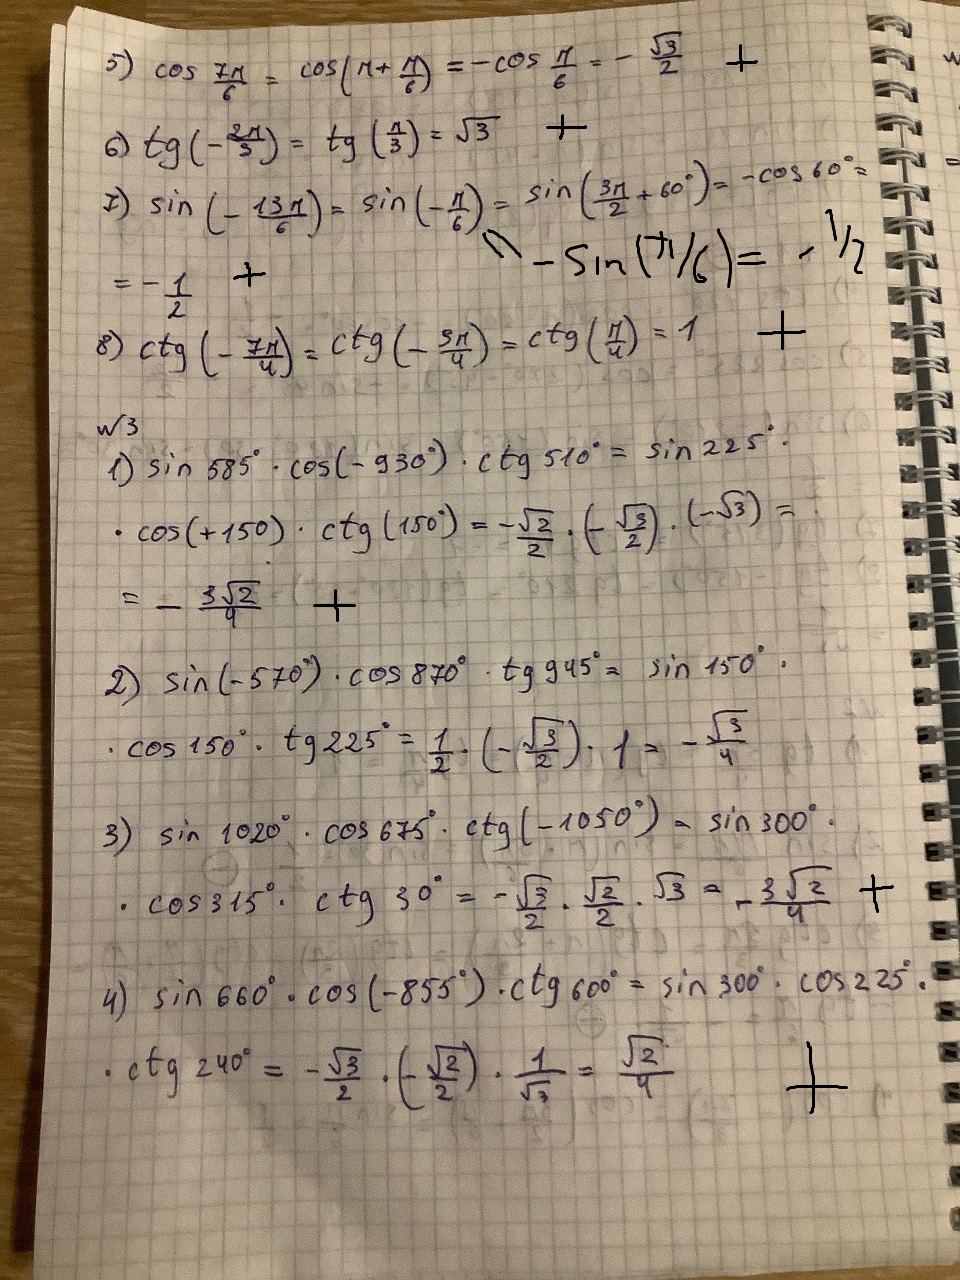 5) cos 7π/6 = cos(π + π/6) = -cos π/6 = - √3/2 +
6) tg(-2π/3) = tg(π/3) = √3 +
7) sin(-13π/6) = sin(-π/6) = sin(3π/2 + 60°) = -cos 60° =
- sin(π/6) = - 1/2
= - 1/2 +
8) ctg(-7π/4) = ctg(-3π/4) = ctg(π/4) = 1 +
№3
1) sin 585° · cos(-930°) · ctg 510° = sin 225° ·
· cos(+150) · ctg(150°) = -√2/2 · (-√3/2) · (-√3) =
= - 3√2/4 +
2) sin(-570°) · cos 870° · tg 945° = sin 150° ·
· cos 150° · tg 225° = 1/2 · (-√3/2) · 1 = - √3/4
3) sin 1020° · cos 675° · ctg(-1050°) = sin 300° ·
· cos 315° · ctg 30° = -√3/2 · √2/2 · √3 = - 3√2/4 +
4) sin 660° · cos(-855°) · ctg 600° = sin 300° · cos 225° ·
· ctg 240° = -√3/2 · (-√2/2) · 1/√3 = √2/4 +